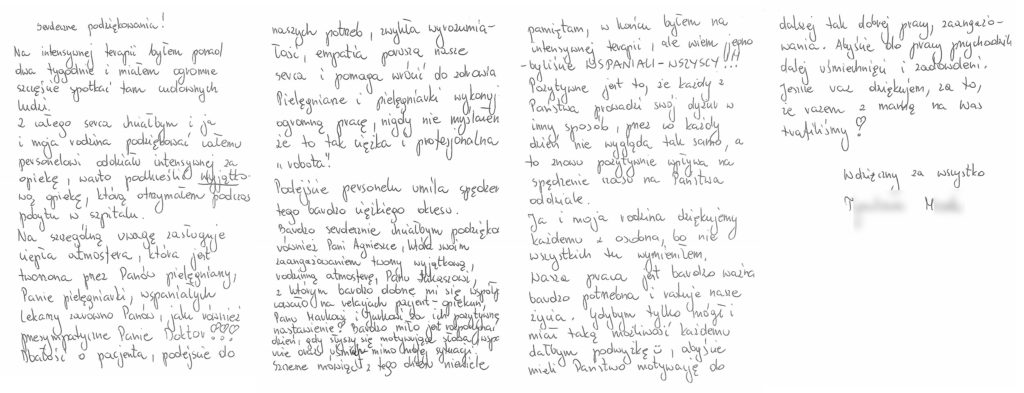 serdeczne podziękowania!
Na intensywnej terapii byłem ponad
dwa tygodnie i miałem ogromne
szczęście spotkać tam cudownych
ludzi.
Z całego serca chciałbym i ja
i moja rodzina podziękować całemu
personelowi oddziału intensywnej za
opiekę, warto podkreślić wyjątko-
wą opiekę, którą otrzymałem podczas
pobytu w szpitalu.
Na szczególną uwagę zasługuje
ciepła atmosfera, która jest
tworzona przez Panów pielęgniarzy,
Panie pielęgniarki, wspaniałych
Lekarzy zarówno Panów, jak również
przesympatyczne Panie Doktor!
Dbałość o pacjenta, podejście do
naszych potrzeb, zwykła wyrozumia-
łość, empatia porusza nasze
serca i pomaga wrócić do zdrowia
Pielęgniarze i pielęgniarki wykonują
ogromną pracę, nigdy nie myślałem
że to tak ciężka i profesjonalna
„robota".
Podejście personelu umila spędzenie
tego bardzo ciężkiego okresu.
Bardzo serdecznie chciałbym podziękować
również Pani Agnieszce, która swoim
zaangażowaniem tworzy wyjątkową,
rodzinną atmosferę, Panu Łukaszowi,
z którym bardzo dobrze mi się współp
racowało na relacjach pacjent-opiekun,
Panu za ich pozytywne
nastawienie! Bardzo miło jest rozpoczynać
dzień, gdy słyszy się motywujące słowa, wspar
cie oraz uśmiech mimo mojej sytuacji.
Szczerze mówiąc z tego okresu niewiele
pamiętam, w końcu byłem na
intensywnej terapii, ale wiem jedno
-byliście WSPANIALI-WSZYSCY!!!
Pozytywne jest to, że każdy z
Państwa prowadzi swój dyżur w
inny sposób, przez co każdy
dzień nie wygląda tak samo, a
to znowu pozytywnie wpływa na
spędzenie czasu na Państwa
oddziale.
Ja i moja rodzina dziękujemy
każdemu z osobna, bo nie
wszystkich tu wymieniłem.
Wasza praca jest bardzo ważna
bardzo potrzebna i ratuje nasze
życia. Gdybym tylko mógł i
miał taką możliwość każdemu
dałbym podwyżkę, abyście
mieli Państwo motywację do
dalszej tak dobrej pracy, zaangażo-
wania. Abyście do pracy przychodzili
dalej uśmiechnięci i zadowoleni.
Jeszcze raz dziękujem, za to,
że razem z mamą na Was
trafiliśmy!
Wdzięczny za wszystko